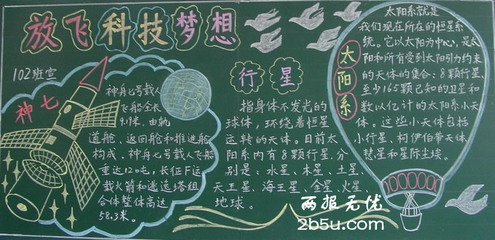 放飞科技梦想
102班宣
神七
神舟七号载人
飞船全长
9.19米,由轨
道舱、返回舱和推进舱
构成,神舟七号载人飞船
重达12吨,长征F运
载火箭和逃逸塔组
合体整体高达
58.3米。
行星
指身体不发光的
球体,环绕着恒星
运转的天体。目前太
阳系内有8颗行星,分
别是:水星、木星、土星、
天王星、海王星、金星、火星、
地球。
太阳系
太阳系就是
我们现在所在的恒星系
统。它以太阳为中心,是太
阳和所有受到太阳引力约束
的天体的集合:8颗行星、
至少165颗已知的卫星和
数以亿计的太阳系小天
体。这些小天体包括
小行星、柯伊伯带天体、
彗星和星际尘埃。
两报无忧
2b5u.com